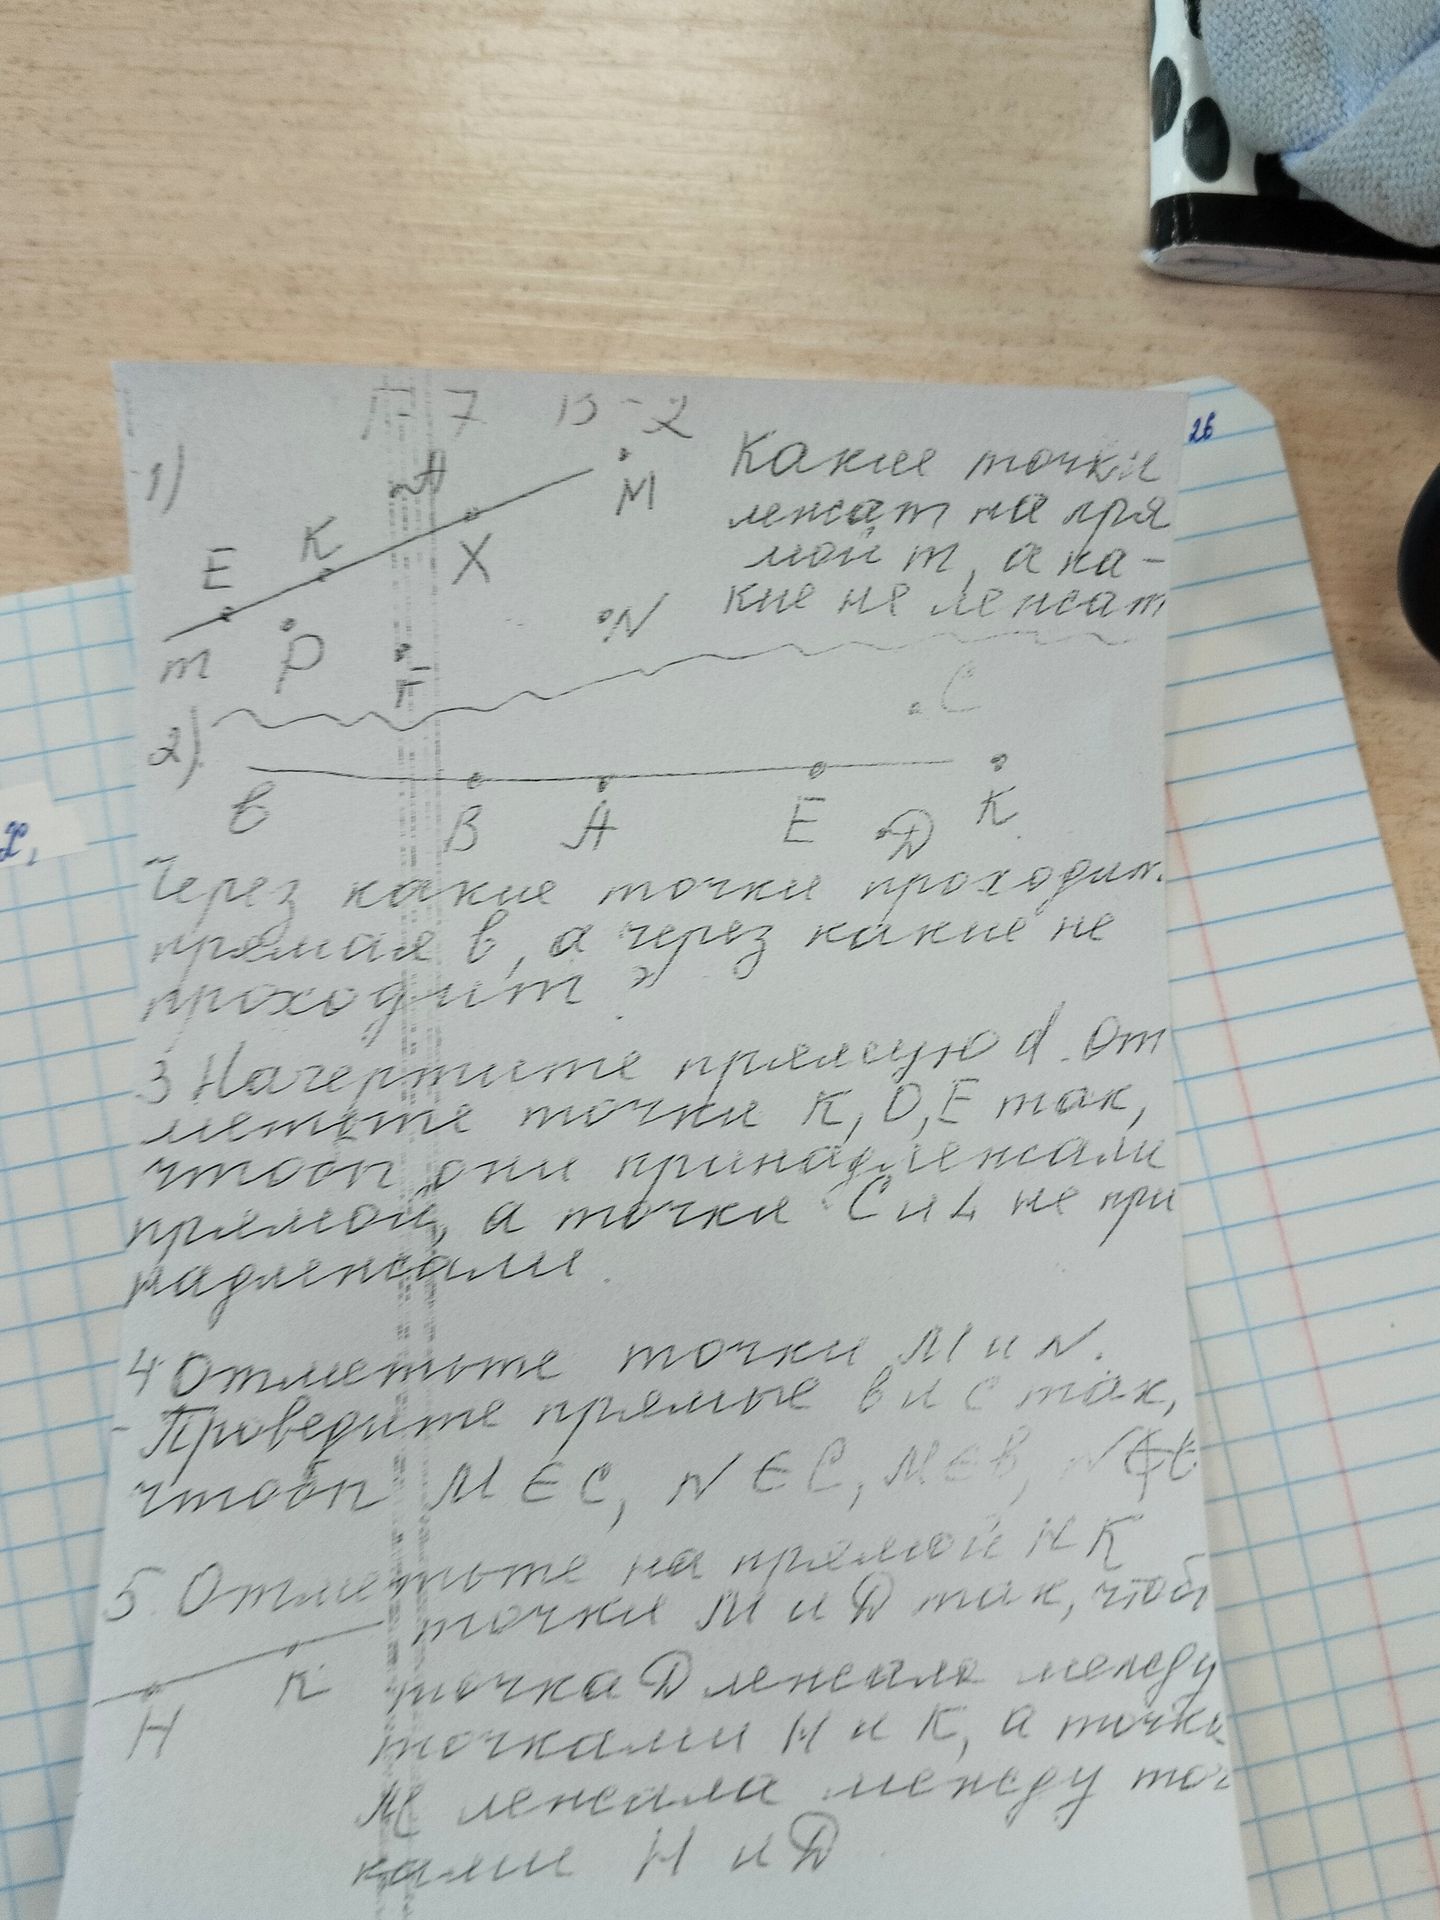 Г-7 В-2
26
1)
Какие точки
лежат на пря
мой m, а ка-
кие не лежат
M
K
E
X
N
m
P
2)
C
в
B A E D K
Через какие точки проходит
прямая в, а через какие не
проходит?
3 Начертите прямую d. От
метьте точки K, O, E так,
чтобы они принадлежали
прямой, а точки C и L не при
надлежали.
4 Отметьте точки M и N.
Проведите прямые в и с так,
чтобы M ∈ C, N ∈ C, M ∈ B, N
5. Отметьте на прямой H K
точки M и D так, чтоб
точка D лежала между
точками H и K, а точка
M лежала между точ
ками H и D
H K